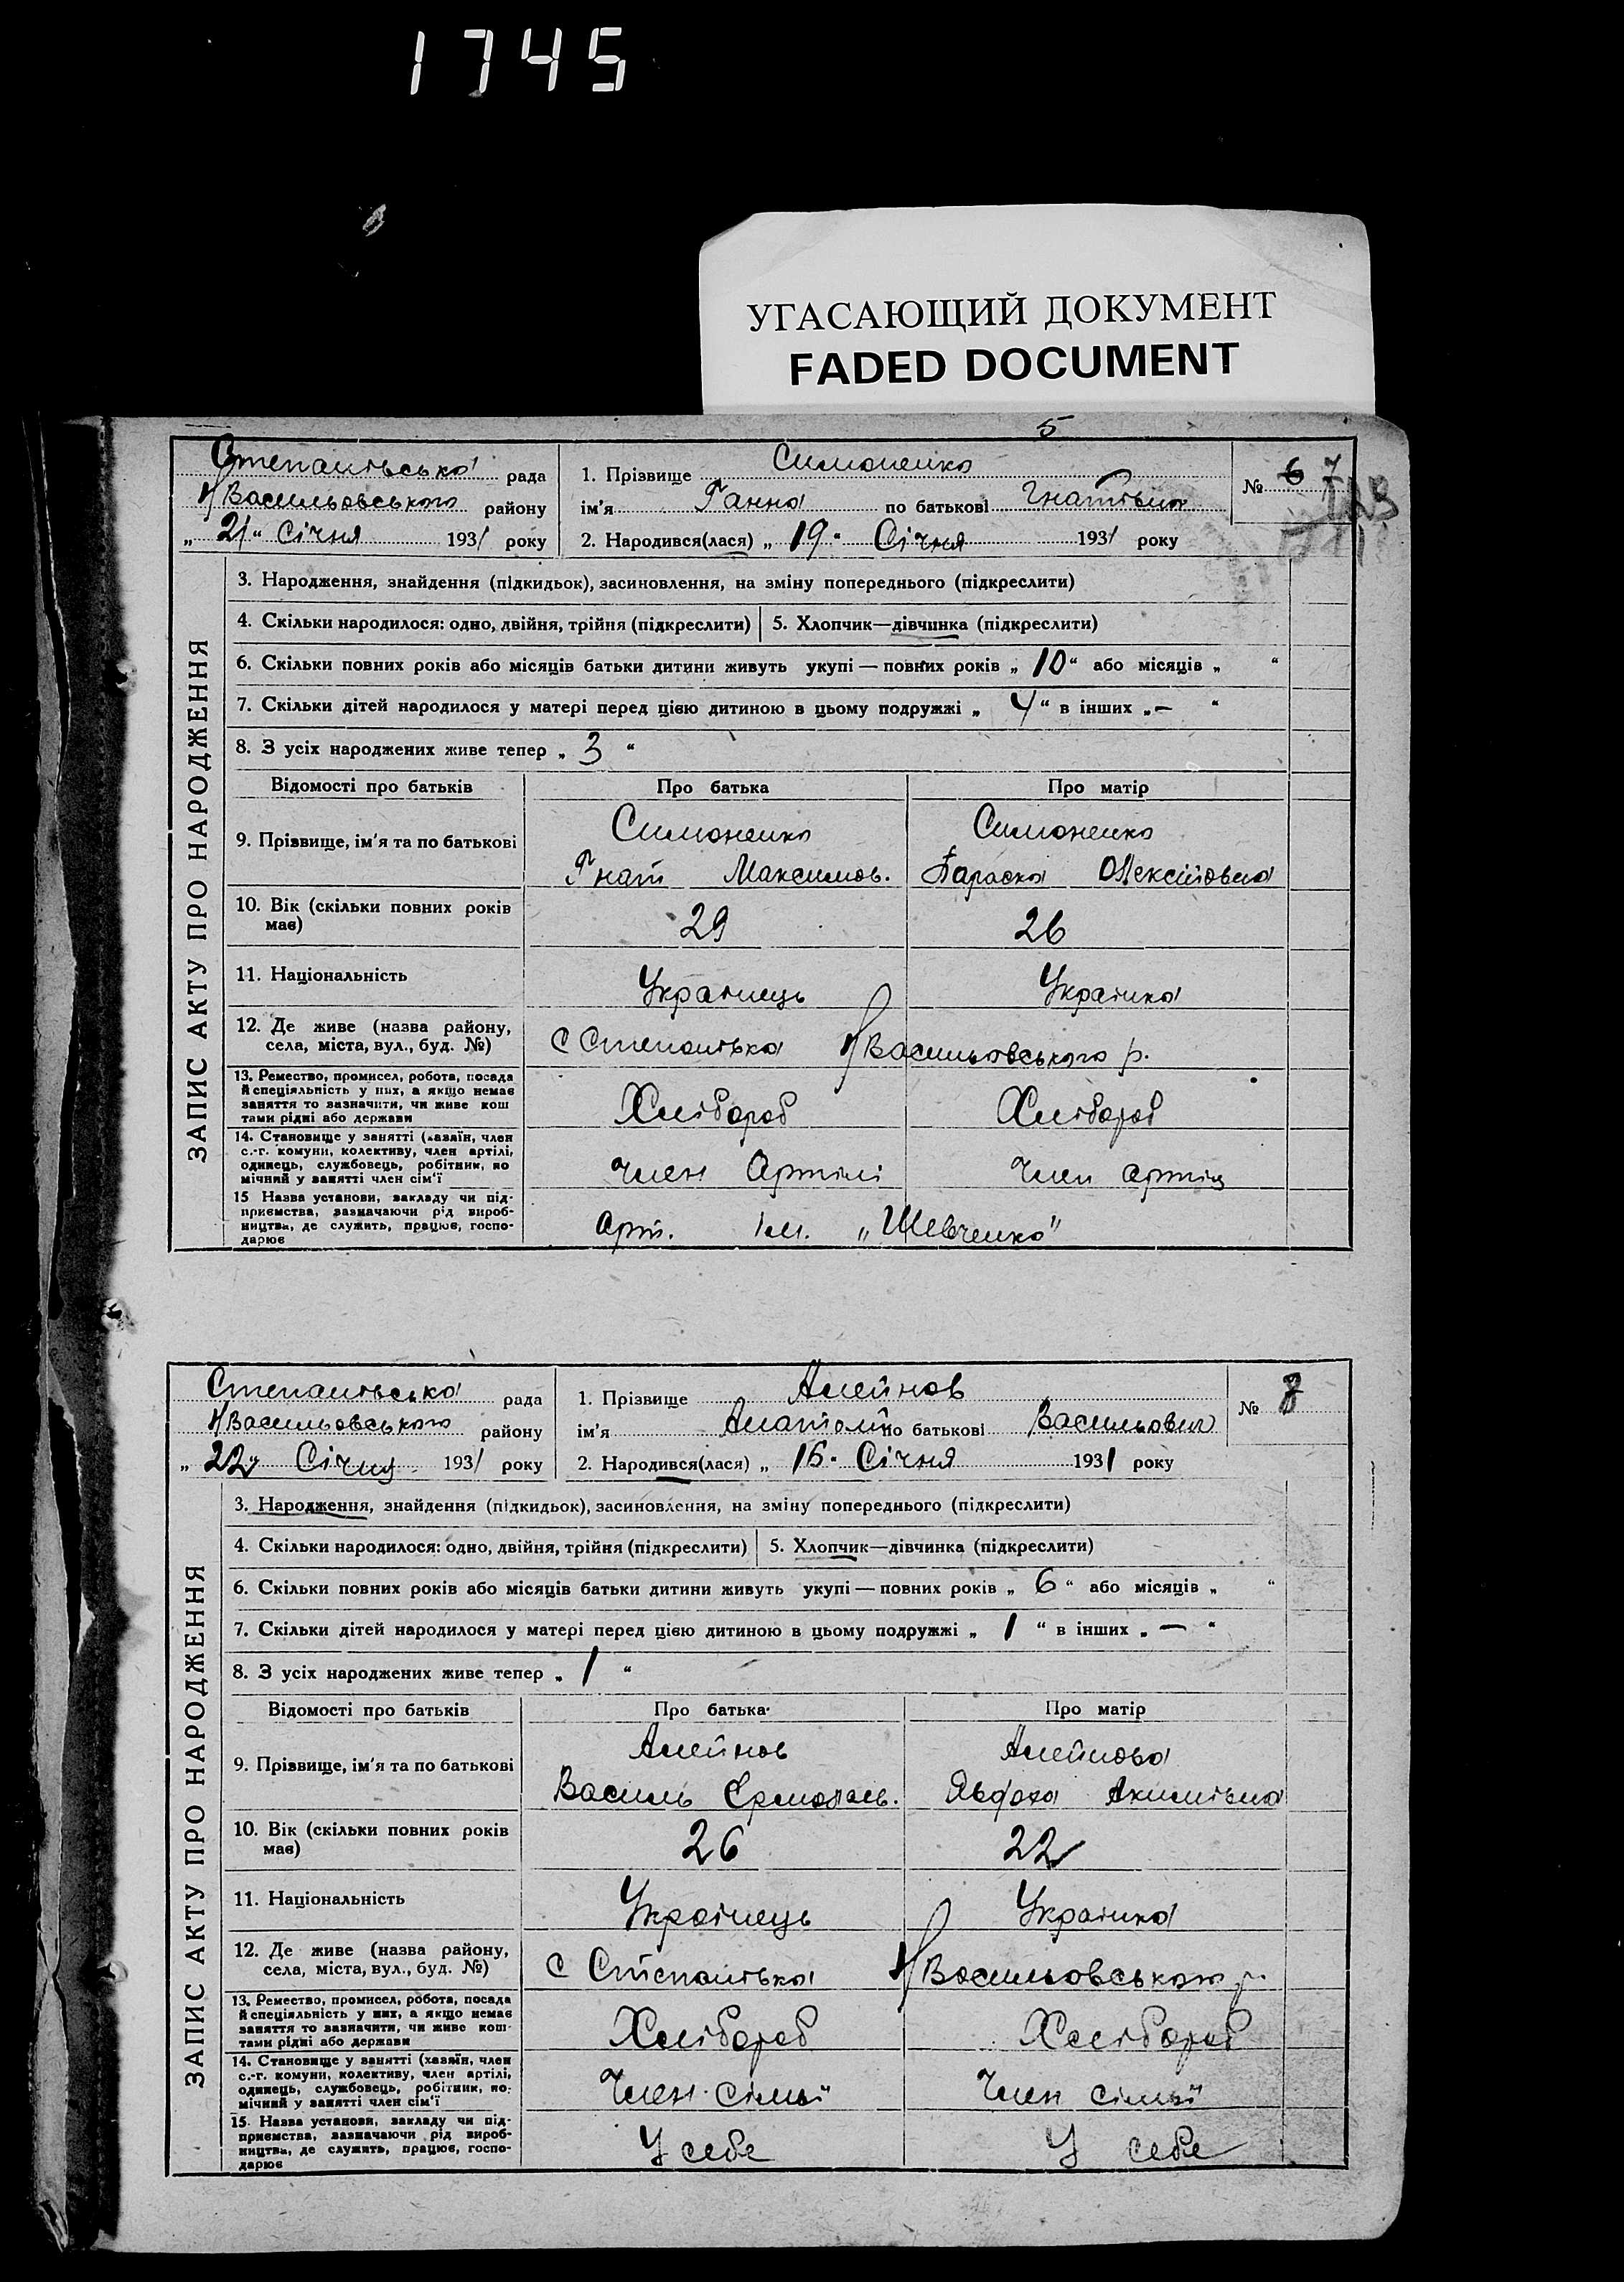 1745
УГАСАЮЩИЙ ДОКУМЕНТ
FADED DOCUMENT
5
Степанівська рада
Н/Васильовського району
„ 21 “ Січня 1931 року
1. Прізвище Симоненко
ім'я Ганна по батькові Гнатівна
2. Народився(лася) „ 19 “ Січня 1931 року
№ 6 7
ЗАПИС АКТУ ПРО НАРОДЖЕННЯ
3. Народження, знайдення (підкидьок), засиновлення, на зміну попереднього (підкреслити)
4. Скільки народилося: одно, двійня, трійня (підкреслити) 5. Хлопчик—дівчинка (підкреслити)
6. Скільки повних років або місяців батьки дитини живуть укупі — повних років „ 10 “ або місяців „ “
7. Скільки дітей народилося у матері перед цією дитиною в цьому подружжі „ 4 “ в інших „ — “
8. З усіх народжених живе тепер „ 3 “
Відомості про батьків Про батька Про матір
9. Прізвище, ім'я та по батькові
Симоненко Симоненко
Гнат Максимов. Параска Олексіївна
10. Вік (скільки повних років має) 29 26
11. Національність Українець Українка
12. Де живе (назва району, села, міста, вул., буд. №)
с Степанівка Н/Васильовського р.
13. Ремество, промисел, робота, посада
й спеціяльність у них, а якщо немає
заняття то зазначити, чи живе кош
тами рідні або держави
Хлібороб Хлібороб
14. Становище у занятті (хазяїн, член
с.-г. комуни, колективу, член артілі,
одинець, службовець, робітник, по
мічний у занятті член сім'ї
Член Артілі Член артіл
15 Назва установи, закладу чи під-
приємства, зазначаючи рід вироб-
ництва, де служить, працює, госпо-
дарює
Арт. Ім. „Шевченко"
Степанівська рада
Н/Васильовського району
„ 22 “ Січня 1931 року
1. Прізвище Алейнов
ім'я Анатолій по батькові Васильович
2. Народився(лася) „ 16 “ Січня 1931 року
№ 8
ЗАПИС АКТУ ПРО НАРОДЖЕННЯ
3. Народження, знайдення (підкидьок), засиновлення, на зміну попереднього (підкреслити)
4. Скільки народилося: одно, двійня, трійня (підкреслити) 5. Хлопчик—дівчинка (підкреслити)
6. Скільки повних років або місяців батьки дитини живуть укупі — повних років „ 6 “ або місяців „ “
7. Скільки дітей народилося у матері перед цією дитиною в цьому подружжі „ 1 “ в інших „ — “
8. З усіх народжених живе тепер „ 1 “
Відомості про батьків Про батька Про матір
9. Прізвище, ім'я та по батькові
Алейнов Алейнова
Василь Єрмолаєв. Явдоха Акимівна
10. Вік (скільки повних років має) 26 22
11. Національність Українець Українка
12. Де живе (назва району, села, міста, вул., буд. №)
с Степанівка Н/Васильовського р.
13. Ремество, промисел, робота, посада
й спеціяльність у них, а якщо немає
заняття то зазначити, чи живе кош-
тами рідні або держави
Хлібороб Хлібороб
14. Становище у занятті (хазяїн, член
с.-г. комуни, колективу, член артілі,
одинець, службовець, робітник, по-
мічний у занятті член сім'ї
Член сімьї Член сімьї
15. Назва установи, закладу чи під-
приємства, зазначаючи рід вироб-
ництва, де служить, працює, госпо-
дарює
У себе У себе